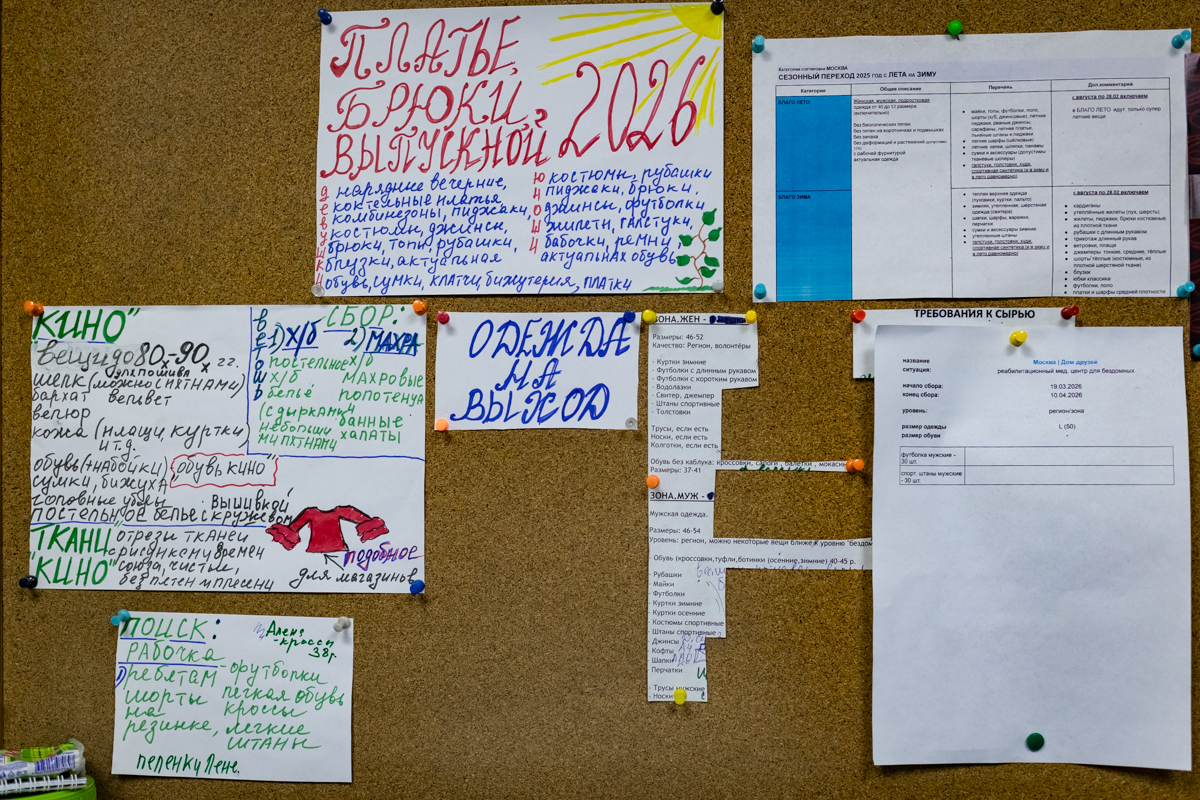 ПЛАТЬЕ,
БРЮКИ,
ВЫПУСКНОЙ 2026
девушки
нарядные вечерние,
коктельные платья
комбинезоны, пиджаки,
костюмы, джинсы,
брюки, топы, рубашки,
блузки, актуальная
обувь, сумки, клатчи, бижутерия, платки
юноши
костюмы, рубашки
пиджаки, брюки,
джинсы, футболки
жилеты, галстуки,
бабочки, ремни
актуальная обувь
Категории сортировки МОСКВА
СЕЗОННЫЙ ПЕРЕХОД 2025 ГОД С ЛЕТА НА ЗИМУ
Категории
Общие описание
Перечень
Доп.комментарий
БЛАГО ЛЕТО
Женская, мужская, подростковая
одежда от 40 до 52 размера
(включительно)
без биологических пятен
без пятен на воротничках и подмышках
без запаха
без деформаций и растяжений
с рабочей фурнитурой
актуальная одежда
майки, топы, футболки, поло,
шорты (х/б, джинсовые), летние
пиджаки, рваные джинсы,
сарафаны, летние платья,
льняные штаны и пиджаки
легкие шарфы (шёлковые)
летние кепки, шляпки, панамы
сумки и аксессуары (допустимы
тканевые шопперы)
галстуки, толстовки, худи,
спортивная синтетика (и в зиму и
в лето равномерно)
с августа по 28.02 включаем
в БЛАГО ЛЕТО идут только супер
летние вещи
БЛАГО ЗИМА
теплая верхняя одежда
(пуховики, куртки, пальто)
зимняя, утепленная, шерстяная
одежда (свитера)
шапки, шарфы, варежки,
перчатки
сумки и аксессуары зимние
утепленные штаны
галстуки, толстовки, худи,
спортивная синтетика (и в зиму и
в лето равномерно)
с августа по 28.02 включаем
кардиганы
утеплённые жилеты (пух, шерсть)
жилеты, пиджаки, брюки костюмные
из плотной ткани
рубашки с длинным рукавом
трикотаж длинный рукав
ветровки, плащи
джемперы тонкие, средние, тёплые
шорты тёплые (костюмные, из
плотной шерстяной ткани)
блузки
юбки классика
футболки, поло
платки и шарфы средней плотности
КИНО"
вещи до 80,-90,х г.г.
для пошива
шелк (можно с пятнами)
бархат вельвет
велюр
кожа (плащи, куртки,
и т.д.
обувь (+наборы) "обувь кино"
сумки, бижуха,
головные уборы вышивкой
постельное белье с кружевом
ТКАНЬ отрезы тканей
"КИНО" с рисунком времен
союза, чистые,
без петен и плесени
ветошь
СБОР:
1) Х/б 2) МАХРА
постельное х/б
х/б
белье
(с дырками и
небольши
ми пятнами
махровые
полотенца
банные
халаты
подобное
для магазинов
ОДЕЖДА
НА
ВЫХОД
ЗОНА.ЖЕН -
Размеры: 46-52
Качество: Регион, волонтёры
- Куртки зимние
- Футболки с длинным рукавом
- Футболки с коротким рукавом
- Водолазки
- Свитер, джемпер
- Штаны спортивные
- Толстовки
Трусы, если есть
Носки, если есть
Колготки, если есть
Обувь без каблука: кроссовки, сапоги, балетки, мокасин
Размеры: 37-41
ЗОНА.МУЖ -
Мужская одежда.
Размеры: 46-54
Уровень: регион, можно некоторые вещи ближе к уровню "бездом
Обувь (кроссовки,туфли,ботинки (осенние,зимние) 40-45 р.
- Рубашки
- Майки
- Футболки
- Куртки зимние
- Куртки осенние
- Костюмы спортивные
- Штаны спортивные
- Джинсы
- Кофты
- Шапки
- Перчатки
- Трусы мужские
- Носки
ТРЕБОВАНИЯ К СЫРЬЮ
название Москва | Дом друзей
ситуация: реабилитационный мед. центр для бездомных
начало сбора: 19.03.2026
конец сбора: 10.04.2026
уровень: регион/зона
размер одежды L (50)
размер обуви -
футболка мужские -
30 шт.
спорт. штаны мужские
- 30 шт.
ПОИСК:
Алене
-кроссы
38р.
РАБОЧКА
ребятам
шорты
на
резинке,
футболки
легкая обувь
кроссы
легкие
штаны
пеленки Лене.